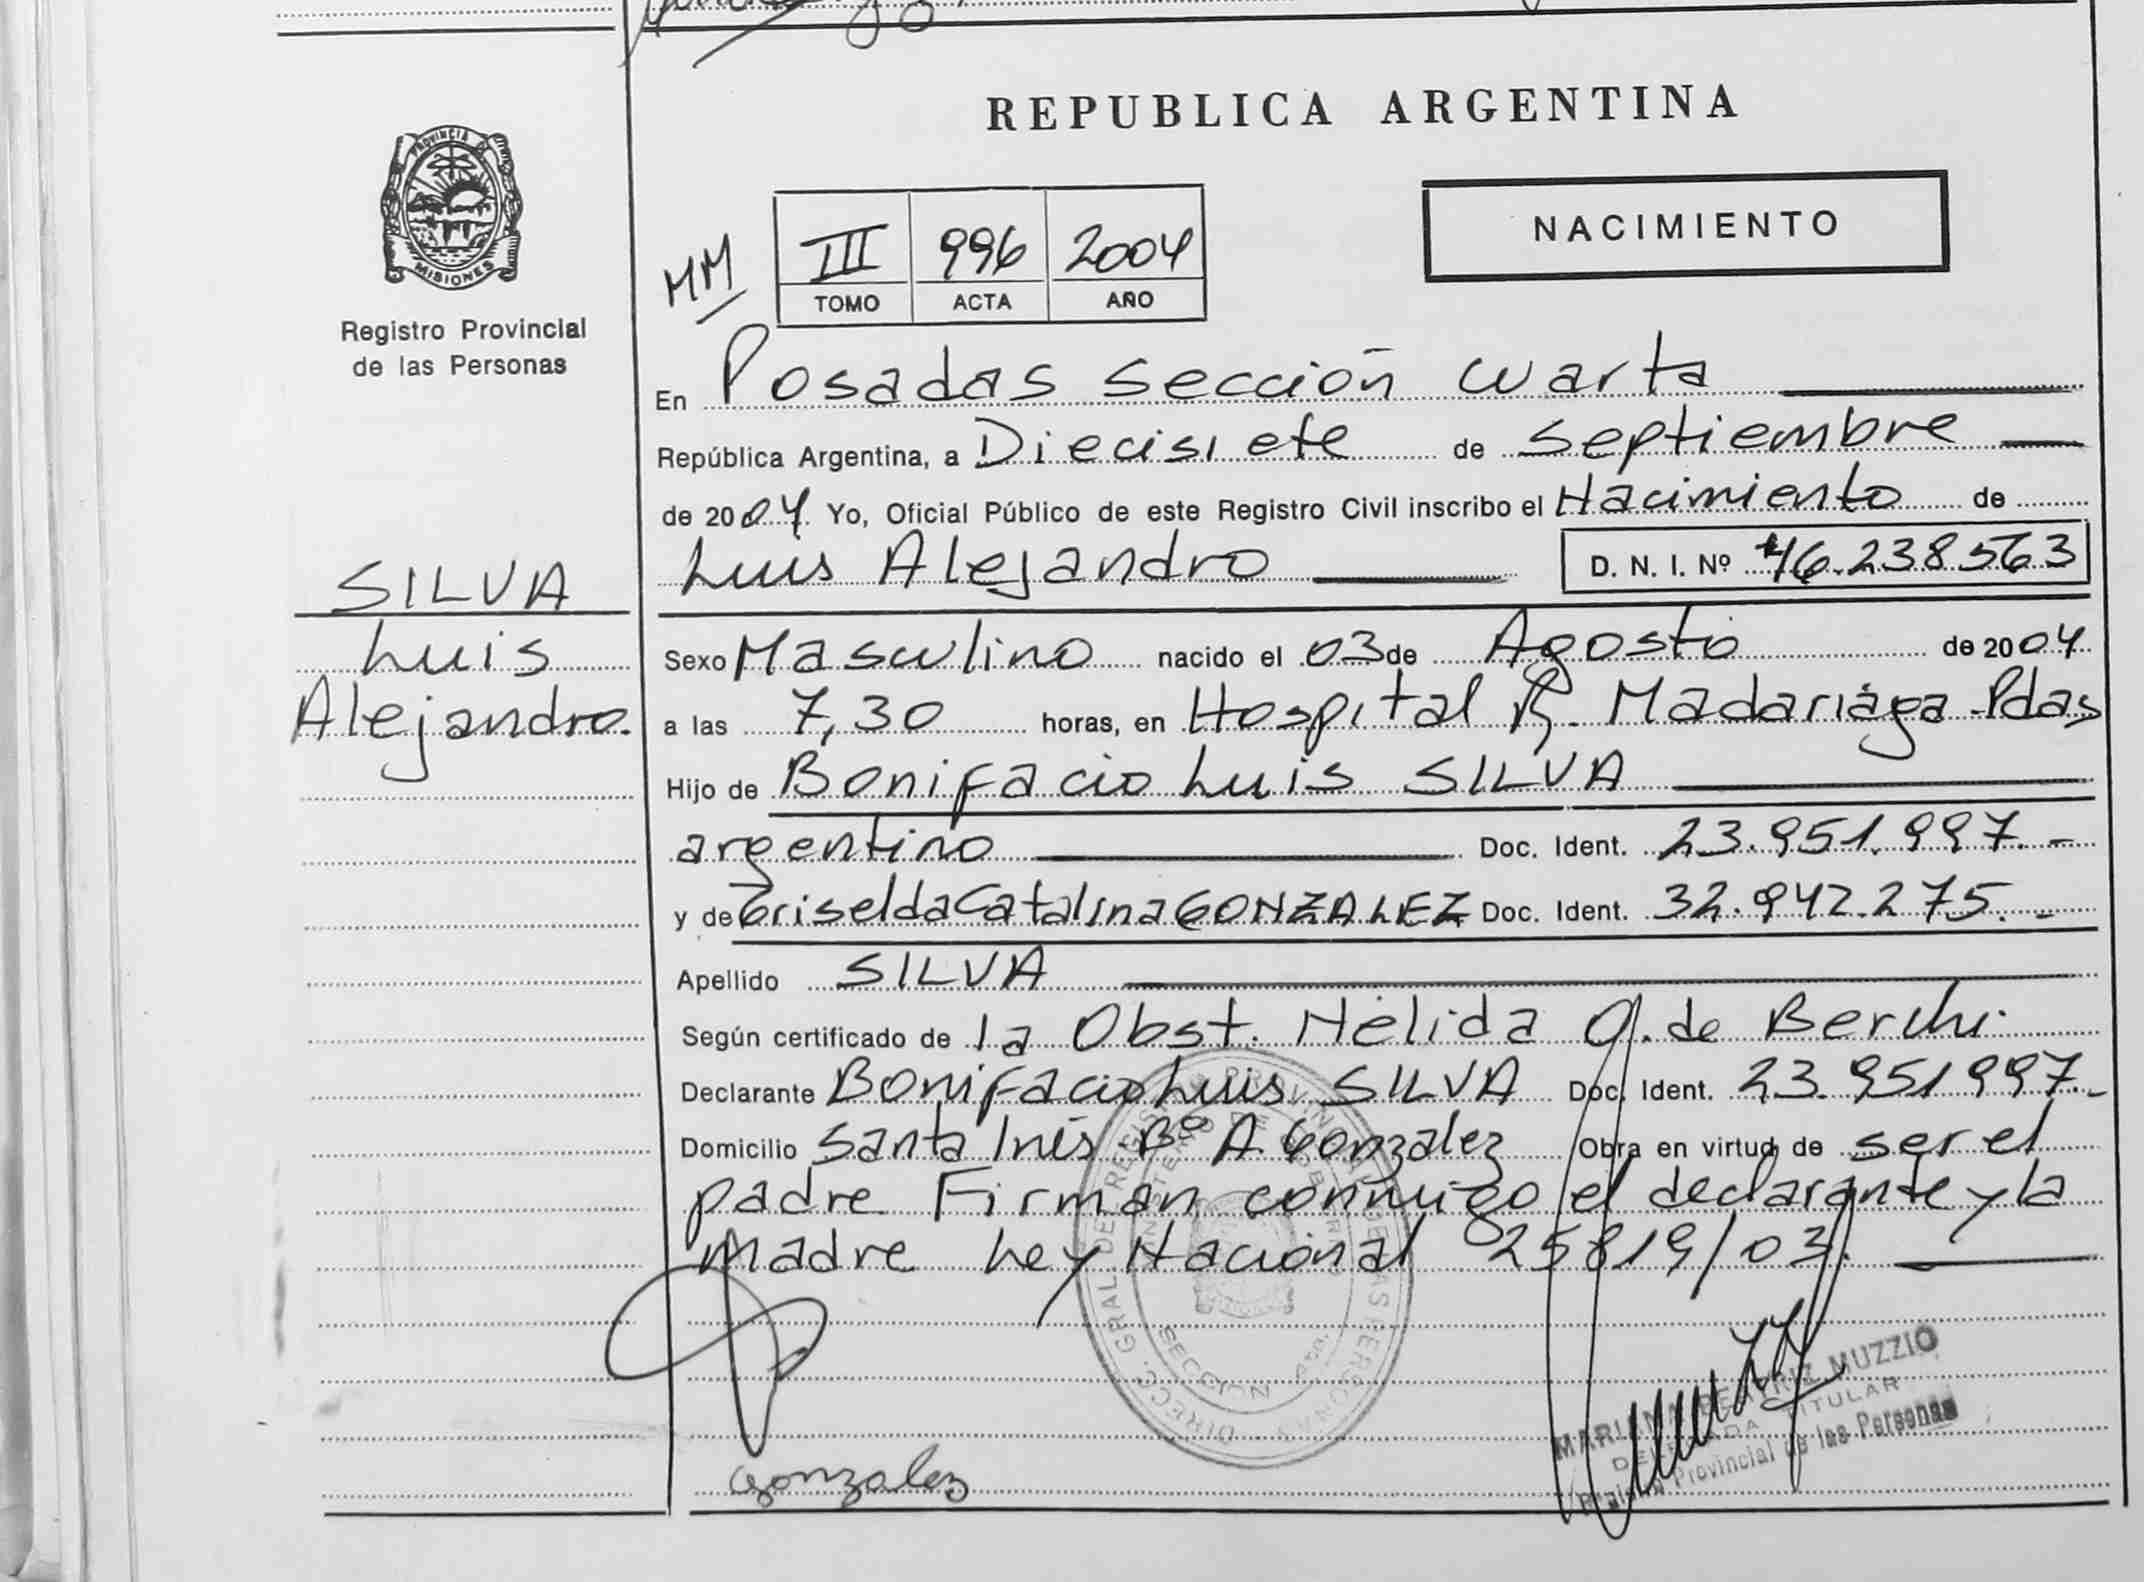 REPUBLICA ARGENTINA
PROVINCIA DE
MISIONES
Registro Provincial
de las Personas
NACIMIENTO
MM
III 996 2004
TOMO ACTA AÑO
En Posadas sección cuarta
República Argentina, a Diecisiete de septiembre
de 2004 Yo, Oficial Público de este Registro Civil inscribo el Nacimiento de
Luis Alejandro D. N. I. Nº 46.238.563
SILVA
Luis
Alejandro.
Sexo Masculino nacido el 03 de Agosto de 2004
a las 7,30 horas, en Hospital R. Madariaga - Pdas
Hijo de Bonifacio Luis SILVA
argentino Doc. Ident. 23.951.997.-
y de Griselda Catalina GONZALEZ Doc. Ident. 32.942.275.-
Apellido SILVA
Según certificado de la Obst. Nélida O. de Berchi.
Declarante Bonifacio Luis SILVA Doc. Ident. 23.951997.-
Domicilio Santa Inés - Bº A. Gonzalez Obra en virtud de ser el
padre Firman conmigo el declarante y la
madre Ley Nacional 25819/03.
DIRECC. GRAL DE REGISTRO PROVINCIAL DE LAS PERSONAS
SECCION 4ta.
MARIANA BEATRIZ MUZZIO
DELEGADA TITULAR
Registro Provincial de las Personas
Gonzalez